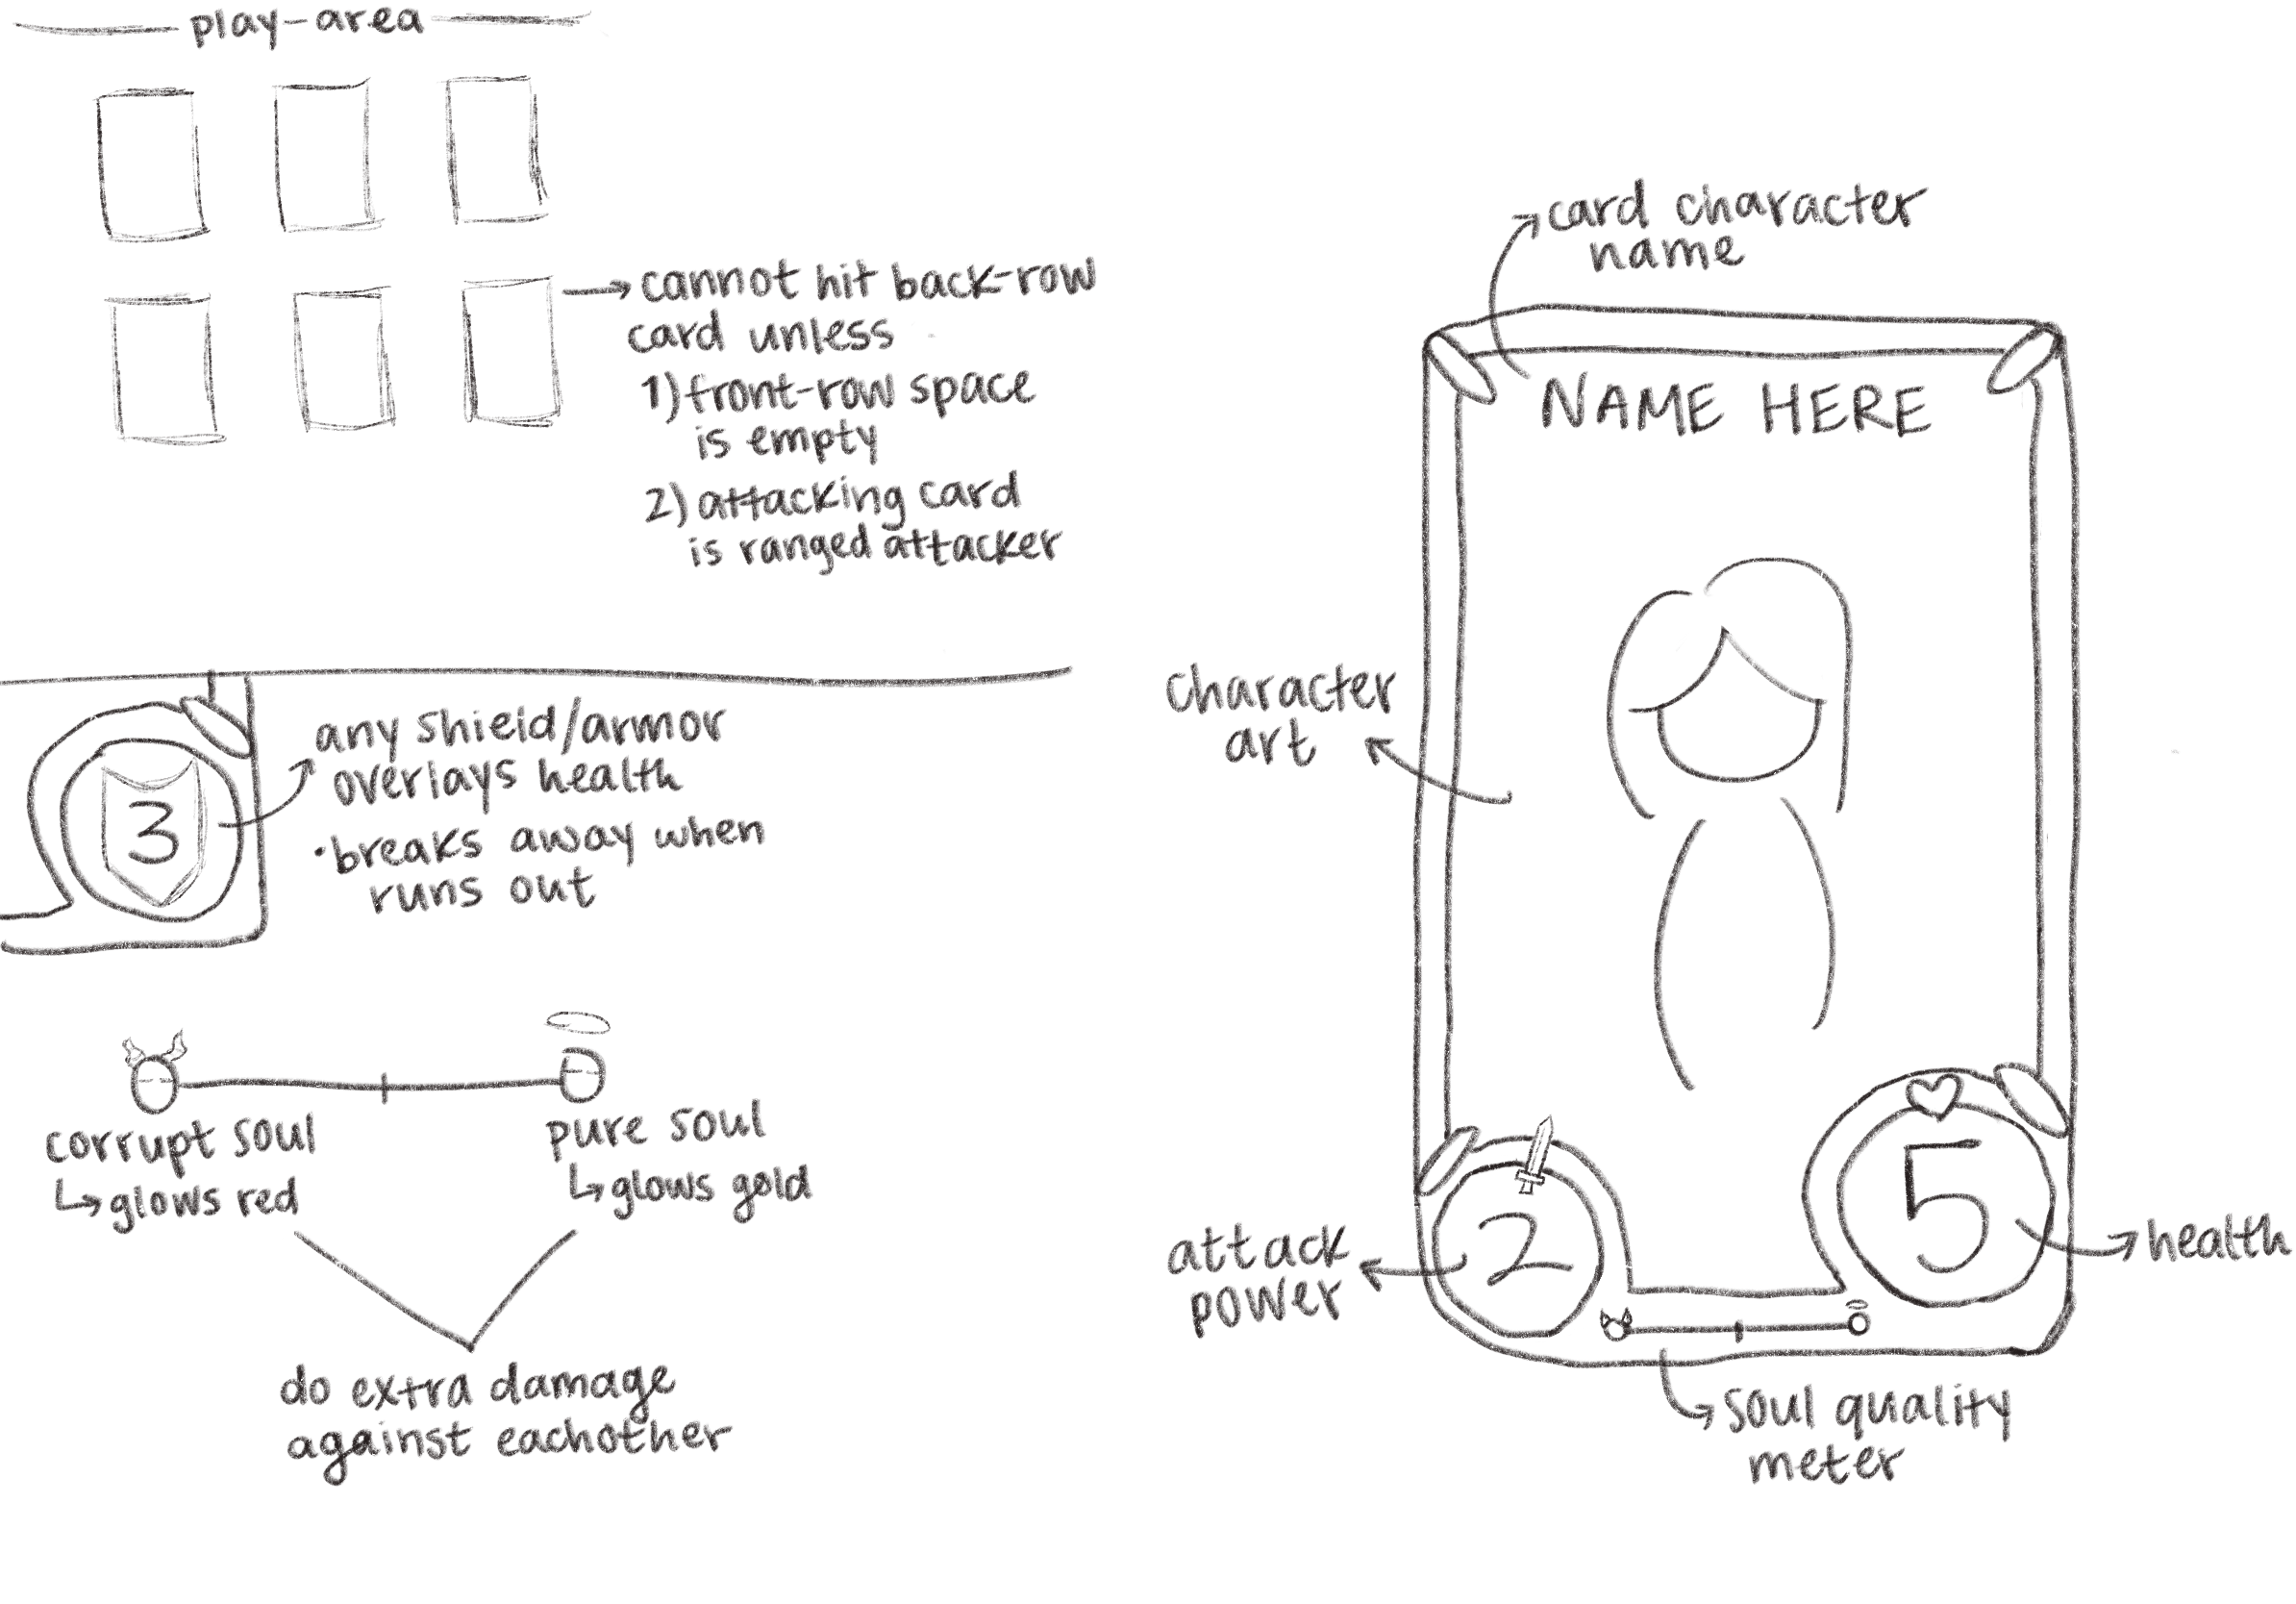 play-area
cannot hit back-row
card unless
1) front-row space
is empty
2) attacking card
is ranged attacker
any shield/armor
overlays health
• breaks away when
runs out
3
corrupt soul
↳ glows red
pure soul
↳ glows gold
do extra damage
against eachother
card character
name
NAME HERE
character
art
attack
power
2
5
health
soul quality
meter